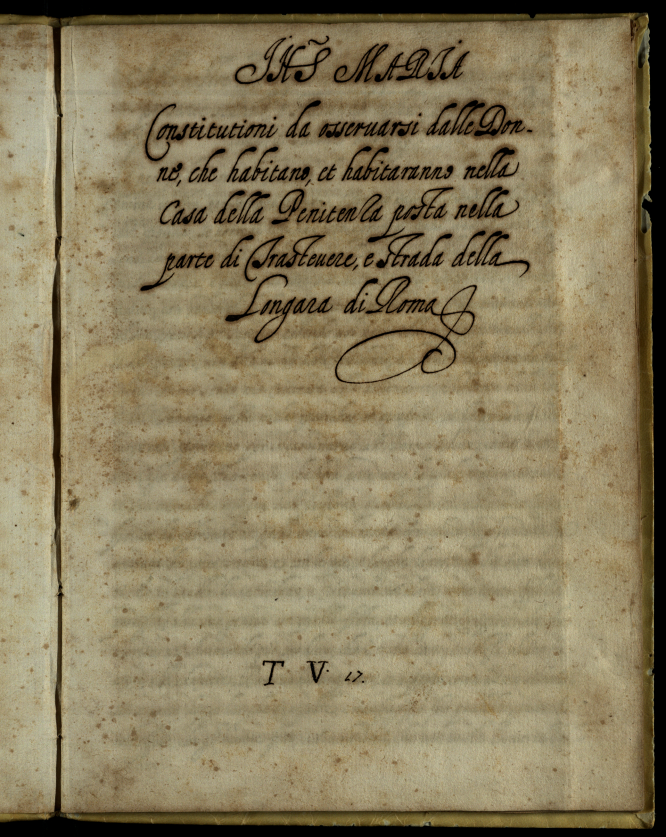 JHS̃ MARIA
Constitutioni da osseruarsi dalle Don-
ne, che habitano, et habitaranno nella
Casa della Penitenza posta nella
parte di Trasteuere, e strada della
Longara di Roma
T. V. 17.